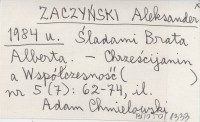 ZACZYŃSKI Aleksander
1984 u. Śladami Brata
Alberta. - Chrześcijanin
a Współczesność (
nr 5 (7): 62-74, il.
Adam Chmielowski